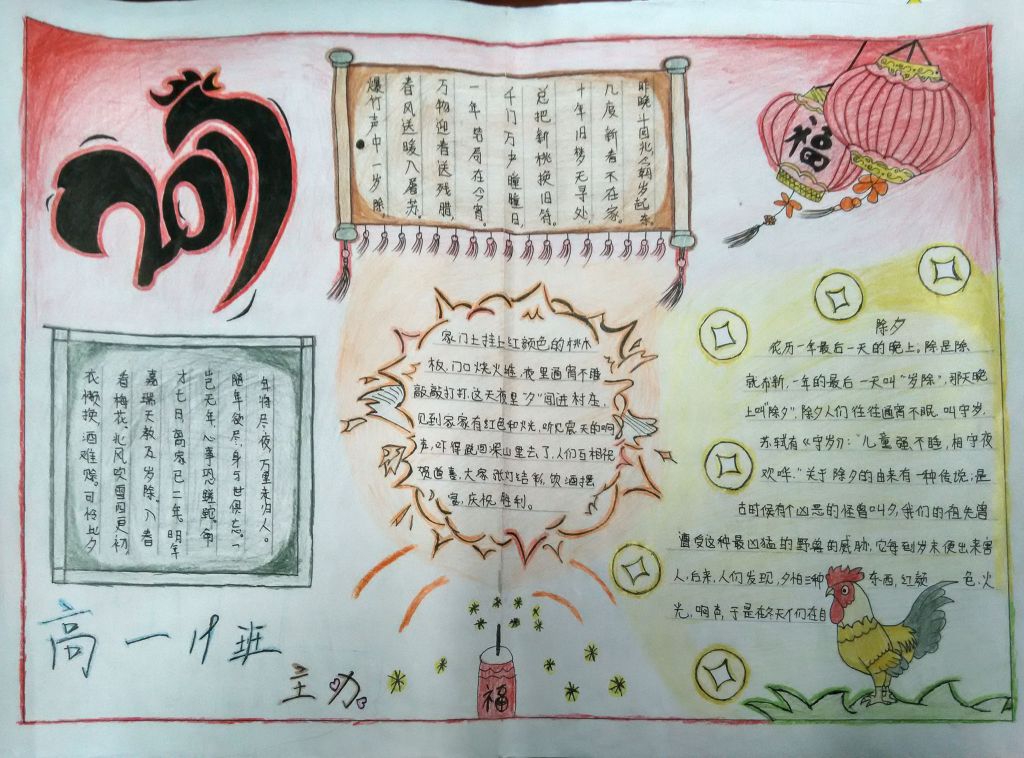 2017
昨晚斗回北
岁起东。
几度新春不在家。
十年旧梦无寻处,
总把新桃换旧符。
千门万户曈曈日,
一年结局在今宵。
万物迎春送残腊,
春风送暖入屠苏。
爆竹声中一岁除,
福
年将尽夜,万里未归人。
随年欲尽,身与世俱忘。一
岂无年,心事恐蹉跎。命
才七日离家已二年。明年
嘉瑞天教及岁除。入春
看梅花,北风吹雪四更初,
衣懒换,酒难赊。可怜此夕
家门上挂上红颜色的桃木
板,门口烧火堆,夜里通宵不睡
敲敲打打.这天夜里"夕"闯进村庄,
见到家家有红色和火光,听见震天的响
声,吓得跑回深山里去了,人们互相祝
贺道喜,大家张灯结彩,饮酒摆
宴,庆祝胜利。
除夕
农历一年最后一天的晚上。除是除
就布新,一年的最后一天叫"岁除",那天晚
上叫"除夕".除夕人们往往通宵不眠,叫守岁,
苏轼有《守岁》:"儿童强不睡,相守夜
欢哗."关于除夕的由来有一种传说:是
古时候有个凶恶的怪兽叫夕,我们的祖先曾
遭受这种最凶猛的野兽的威胁,它每到岁末便出来害
人,后来,人们发现,夕怕三种东西,红颜色,火
光,响声,于是在冬天人们在自
福
高一19班
主办